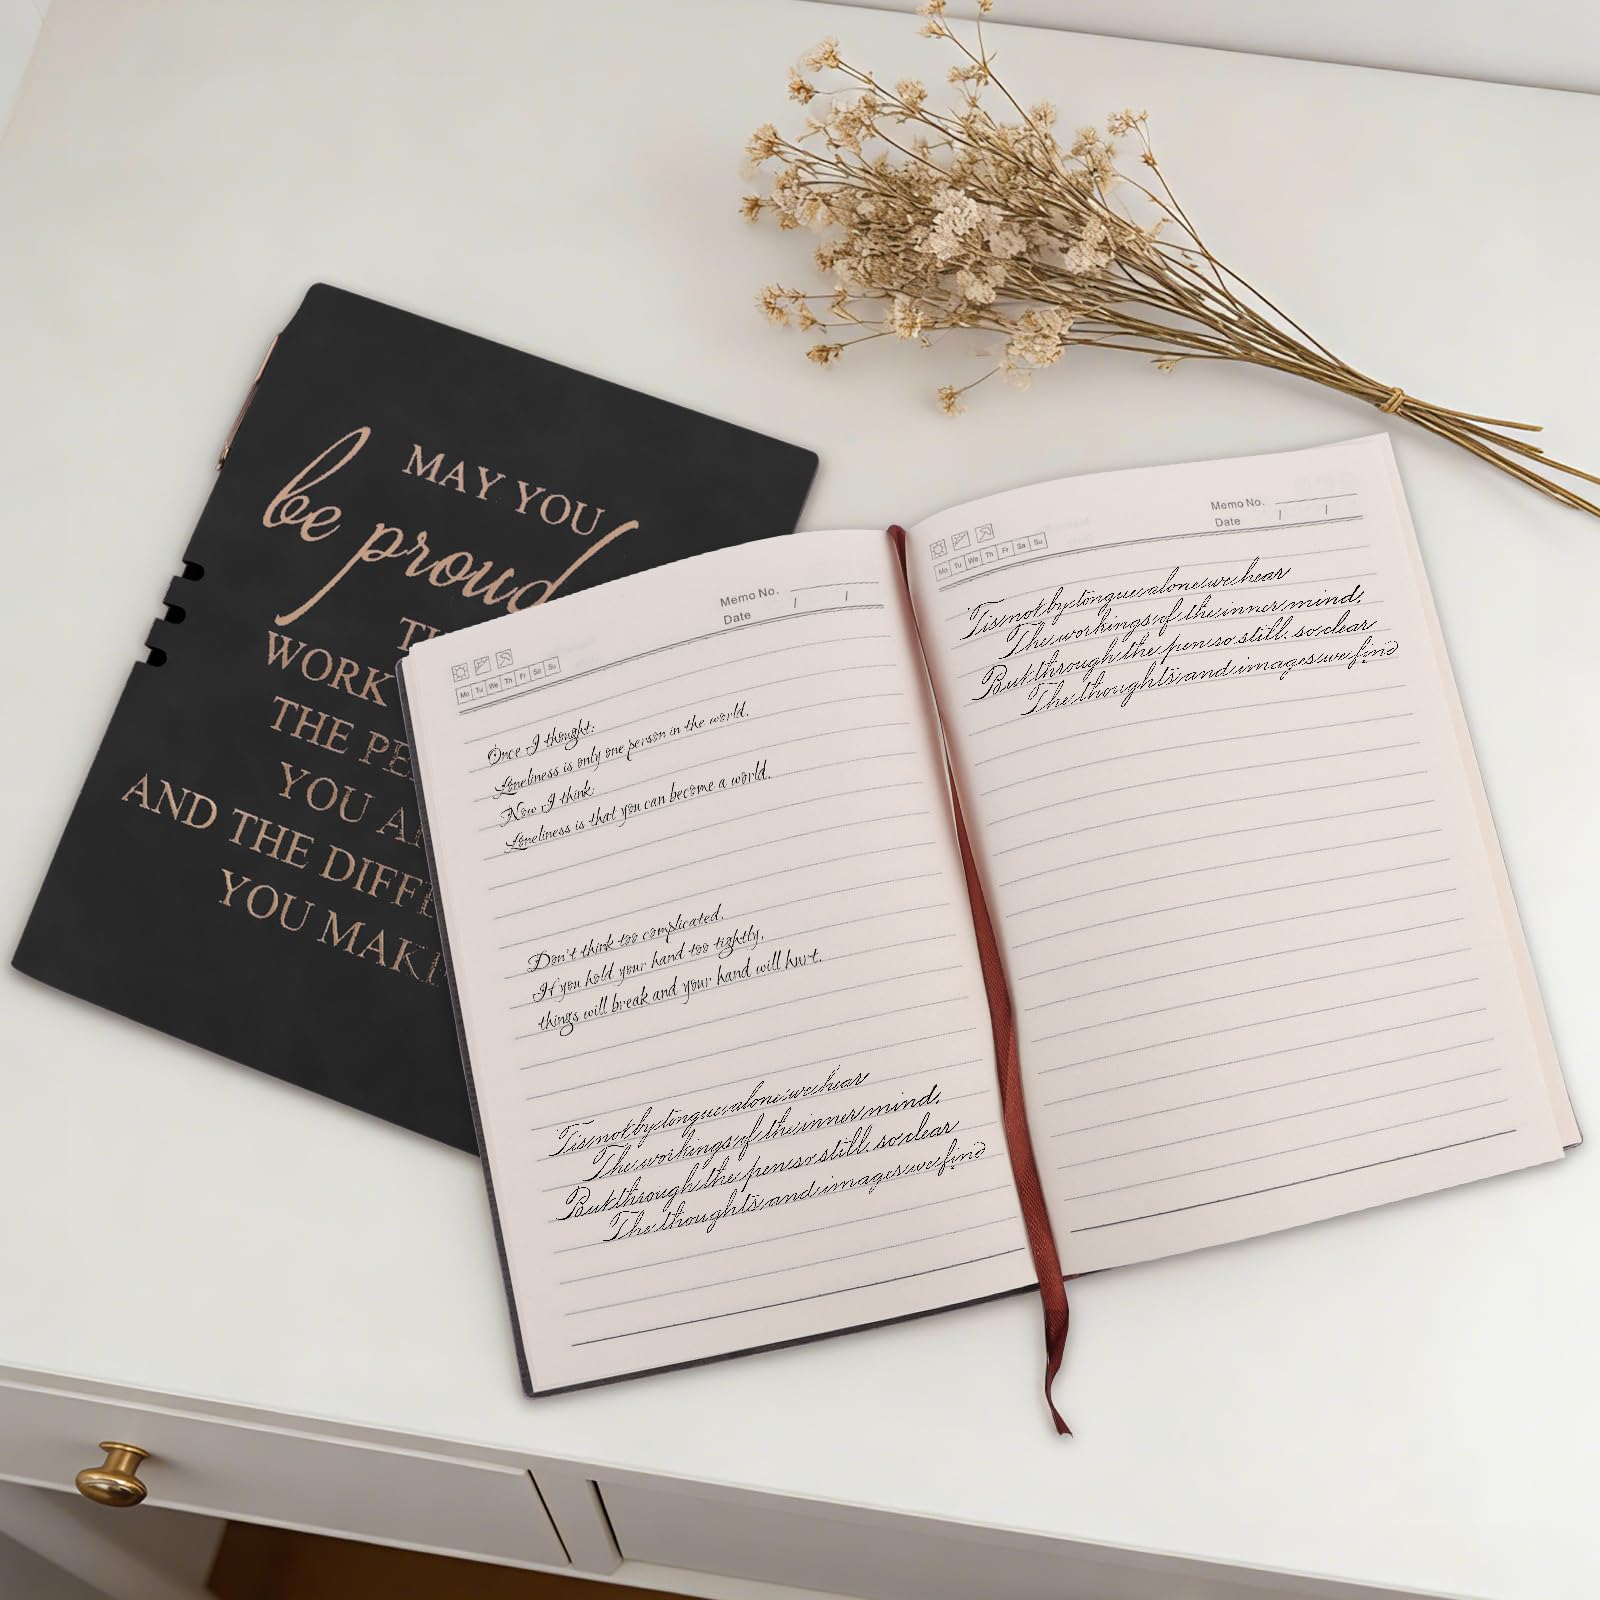 MAY YOU
be proud
WORK
THE
YOU
AND THE
YOU
Memo No.
Date / /
Mo Tu We Th Fr Sa Su
Once I thought:
Loneliness is only one person in the world.
Now I think:
Loneliness is that you can become a world.
Don't think too complicated.
If you hold your hand too tightly,
things will break and your hand will hurt.
'Tis not by tongue alone we hear
The workings of the inner mind.
But through the pen so still, so clear
The thoughts and images we find
Memo No.
Date / /
Mo Tu We Th Fr Sa Su
'Tis not by tongue alone we hear
The workings of the inner mind.
But through the pen so still, so clear
The thoughts and images we find